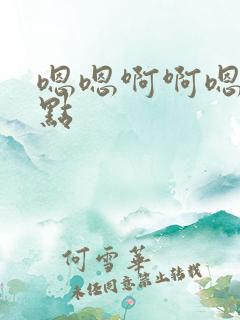 嗯嗯啊啊嗯
點
何雪華
未经同意禁止转载